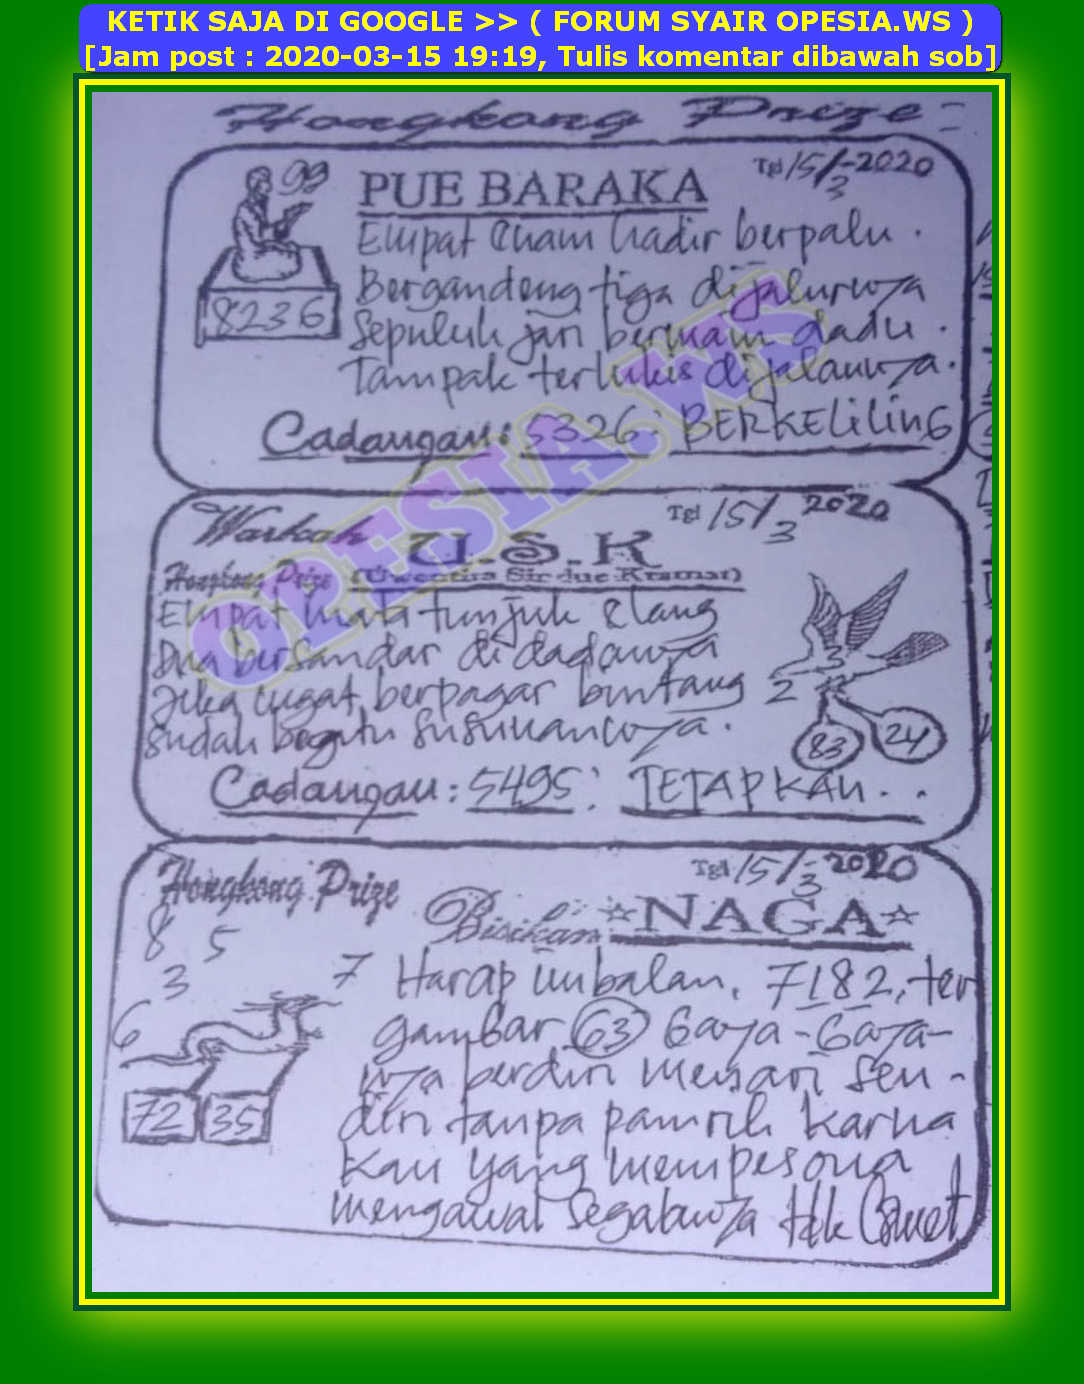 KETIK SAJA DI GOOGLE >> ( FORUM SYAIR OPESIA.WS )
[Jam post : 2020-03-15 19:19, Tulis komentar dibawah sob]
Hongkong Prize :
99
8236
PUE BARAKA
Tgl 15/3-2020
Empat enam hadir berpalu.
Bergandeng tiga dijalurnya
Sepuluh jari bermain dadu.
Tampak terlukis dijalannya.
Cadangan: 5326: BERKELiLiNG
OPESIA.WS
Warkah
U.S.K
Tgl 15/3 2020
Hongkong Prize
Empat mata tunjuk elang
Dua bersandar didadanya
Jika ingat berpagar bintang
Sudah begitu susunannya.
3
2
83
24
Cadangan: 5495: TETAPKAN...
Hongkong Prize
Tgl 15/3-2020
Bisikan ☆NAGA☆
8 5
3
7
6
72 35
Harap imbalan, 7182, ter
gambar 63 Gaya-Gaya-
nya berdiri menari sen-
diri tanpa pamrih karna
Kau yang mempesona
mengawal segalanya tdk